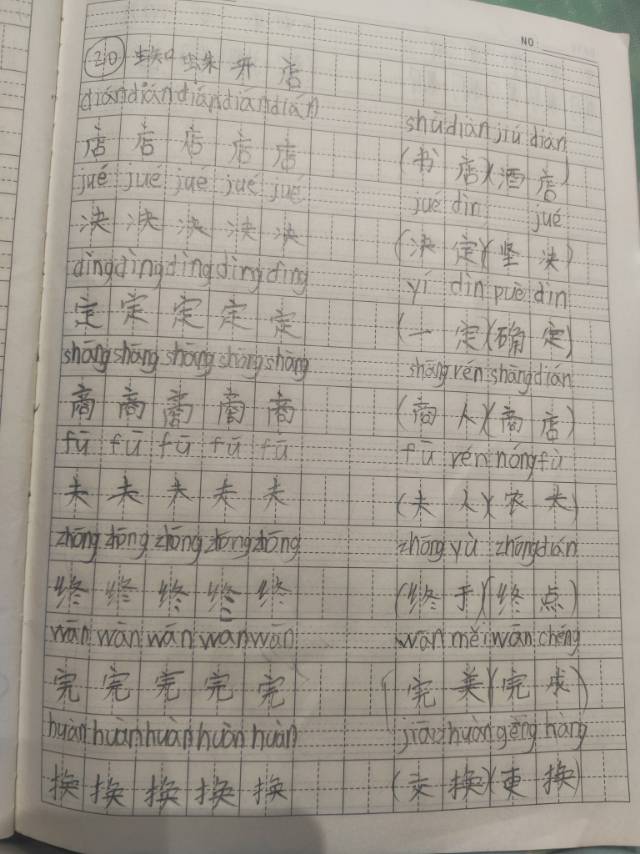 NO
20 蜘蛛开店
diándiándiándiándián
shūdiàn jiǔ diàn
店 店 店 店 店 (书 店)(酒 店)
jué jué jué jué jué jué dìn jué
决 决 决 决 决 (决 定)(坚 决)
dìngdìngdìngdìngdìng yí dìn puè dìn
定 定 定 定 定 (一 定)(确 定)
shāng shāng shāng shāng shāng shāng rén shāngdián
商 商 商 商 商 (商 人)(商 店)
fū fū fū fū fū fū rén nóngfù
夫 夫 夫 夫 夫 (夫 人)(农 夫)
zhōng zhōng zhōng zhōng zhōng zhōng yù zhōngdián
终 终 终 终 终 (终 于)(终 点)
wán wán wán wán wán wán měi wán chéng
完 完 完 完 完 (完 美)(完 成)
huàn huàn huàn huàn huàn jiāo huàn gēng hàng
换 换 换 换 换 (交 换)(更 换)